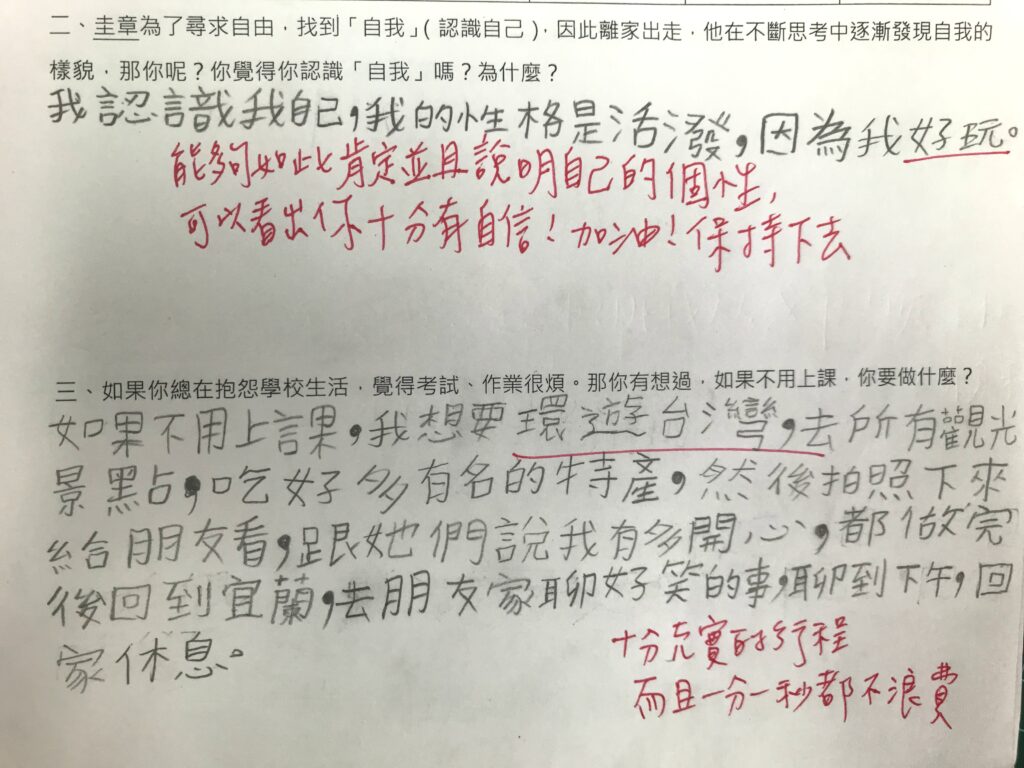 二、圭章為了尋求自由，找到「自我」( 認識自己 )，因此離家出走，他在不斷思考中逐漸發現自我的
樣貌，那你呢？你覺得你認識「自我」嗎？為什麼？
我認識我自己，我的性格是活潑，因為我好玩。
能夠如此肯定並且說明自己的個性，
可以看出你十分有自信！加油！保持下去
三、如果你總在抱怨學校生活，覺得考試、作業很煩。那你有想過，如果不用上課，你要做什麼？
如果不用上課，我想要環遊台灣，去所有觀光
景點，吃好多有名的特產，然後拍照下來
給朋友看，跟她們說我有多開心，都做完
後回到宜蘭，去朋友家聊好笑的事，聊到下午，回
家休息。
十分充實的行程
而且一分一秒都不浪費